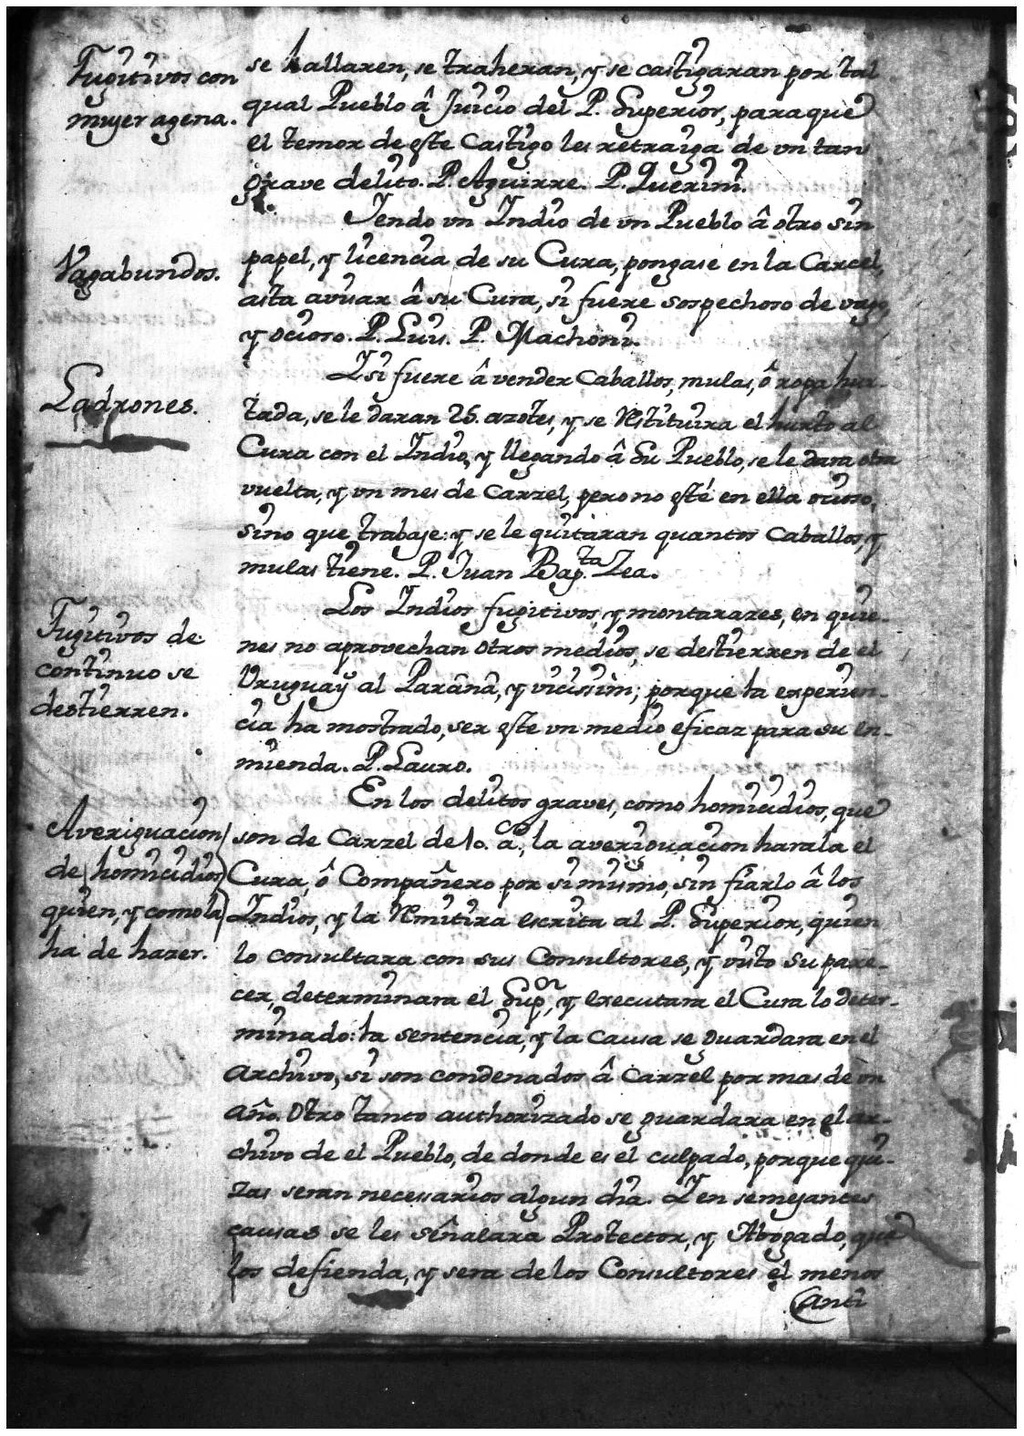 Fugitivos con
muger agena.
se hallaren, se traheran, y se castigaran por tal
qual Pueblo â Juicio del P. Superior, paraque
el temor de este Castigo les retraiga de vn tan
grave delito. P. Aguirre. P. Querini.
Vagabundos.
Iendo vn Indio de vn Pueblo â otro sin
papel, y licencia de su Cura, pongase en la Carcel,
asta avisar â su Cura, si fuere sospechoso de vago,
y ocioso. P. Luis. P. Machoni.
Ladrones.
I si fuere â vender Caballos, mulas, ô ropa hur-
tada, se le daran 25. azotes, y se restituira el hurto al
Cura con el Indio, y llegando â su Pueblo, se le dara otra
vuelta, y un mes de Carzel, pero no esté en ella ocioso,
sino que trabaje: y se le quitaran quantos Caballos, y
mulas tiene. P. Juan Bap.ta Zea.
Fugitivos de
continuo se
destierren.
Los Indios fugitivos, y montarazes, en quie-
nes no aprovechan otros medios, se destierren de el
Uruguaÿ al Paranâ, y vicissim; porque la experien-
cia ha mostrado, ser este vn medio eficaz para su en-
mienda. P. Lauro.
Averiguacion
de homicidios
quien, y como la
ha de hazer.
En los delitos graves, como homicidios, que
son de Carzel de 10. a, la averiguacion harala el
Cura, ô Compañero por si mismo, sin fiarlo â los
Indios, y la remitira escrita al P. Superior, quien
lo consultara con sus Consultores, y visto su pare-
cer, determinara el Sup.or, y executara el Cura lo deter-
minado: la sentencia, y la causa se guardara en el
archivo, si son condenados â Carzel por mas de vn
año. Otro tanto authorizado se guardara en el ar-
chivo de el Pueblo, de donde es el culpado, porque qui-
zas seran necessarios algun dia. I en semejantes
causas se les señalara Protector, y Abogado, que
los defienda, y sera de los Consultores el menos
anti